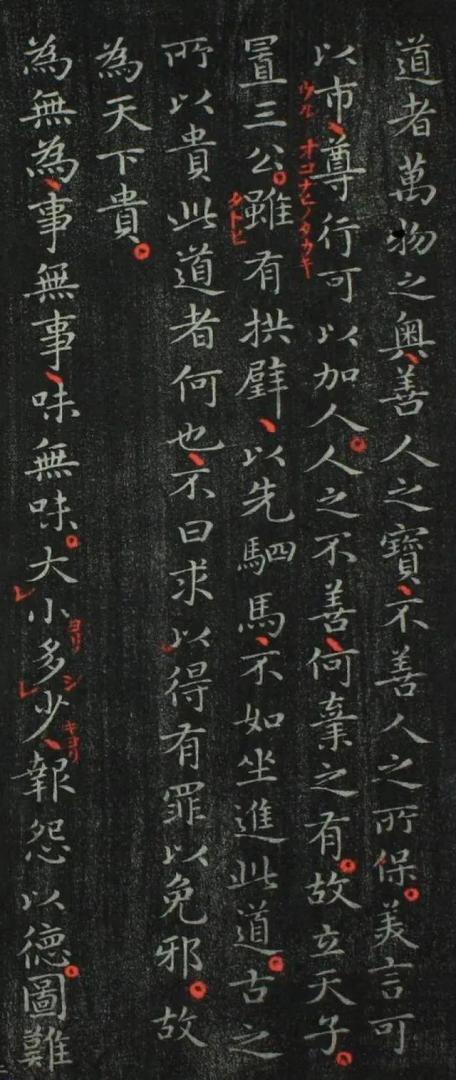 道者萬物之奧、善人之寶、不善人之所保。美言可
以市、尊行可以加人。人之不善、何棄之有。故立天子。
ウル オコナヒノタカキ
置三公。雖有拱璧、以先駟馬、不如坐進此道。古之
タトヒ
所以貴此道者何也、不曰求以得有罪以免邪。故
為天下貴。
為無為、事無事、味無味。大小多少、報怨以德。圖難
ヨリ シ キヨリ
レ レ